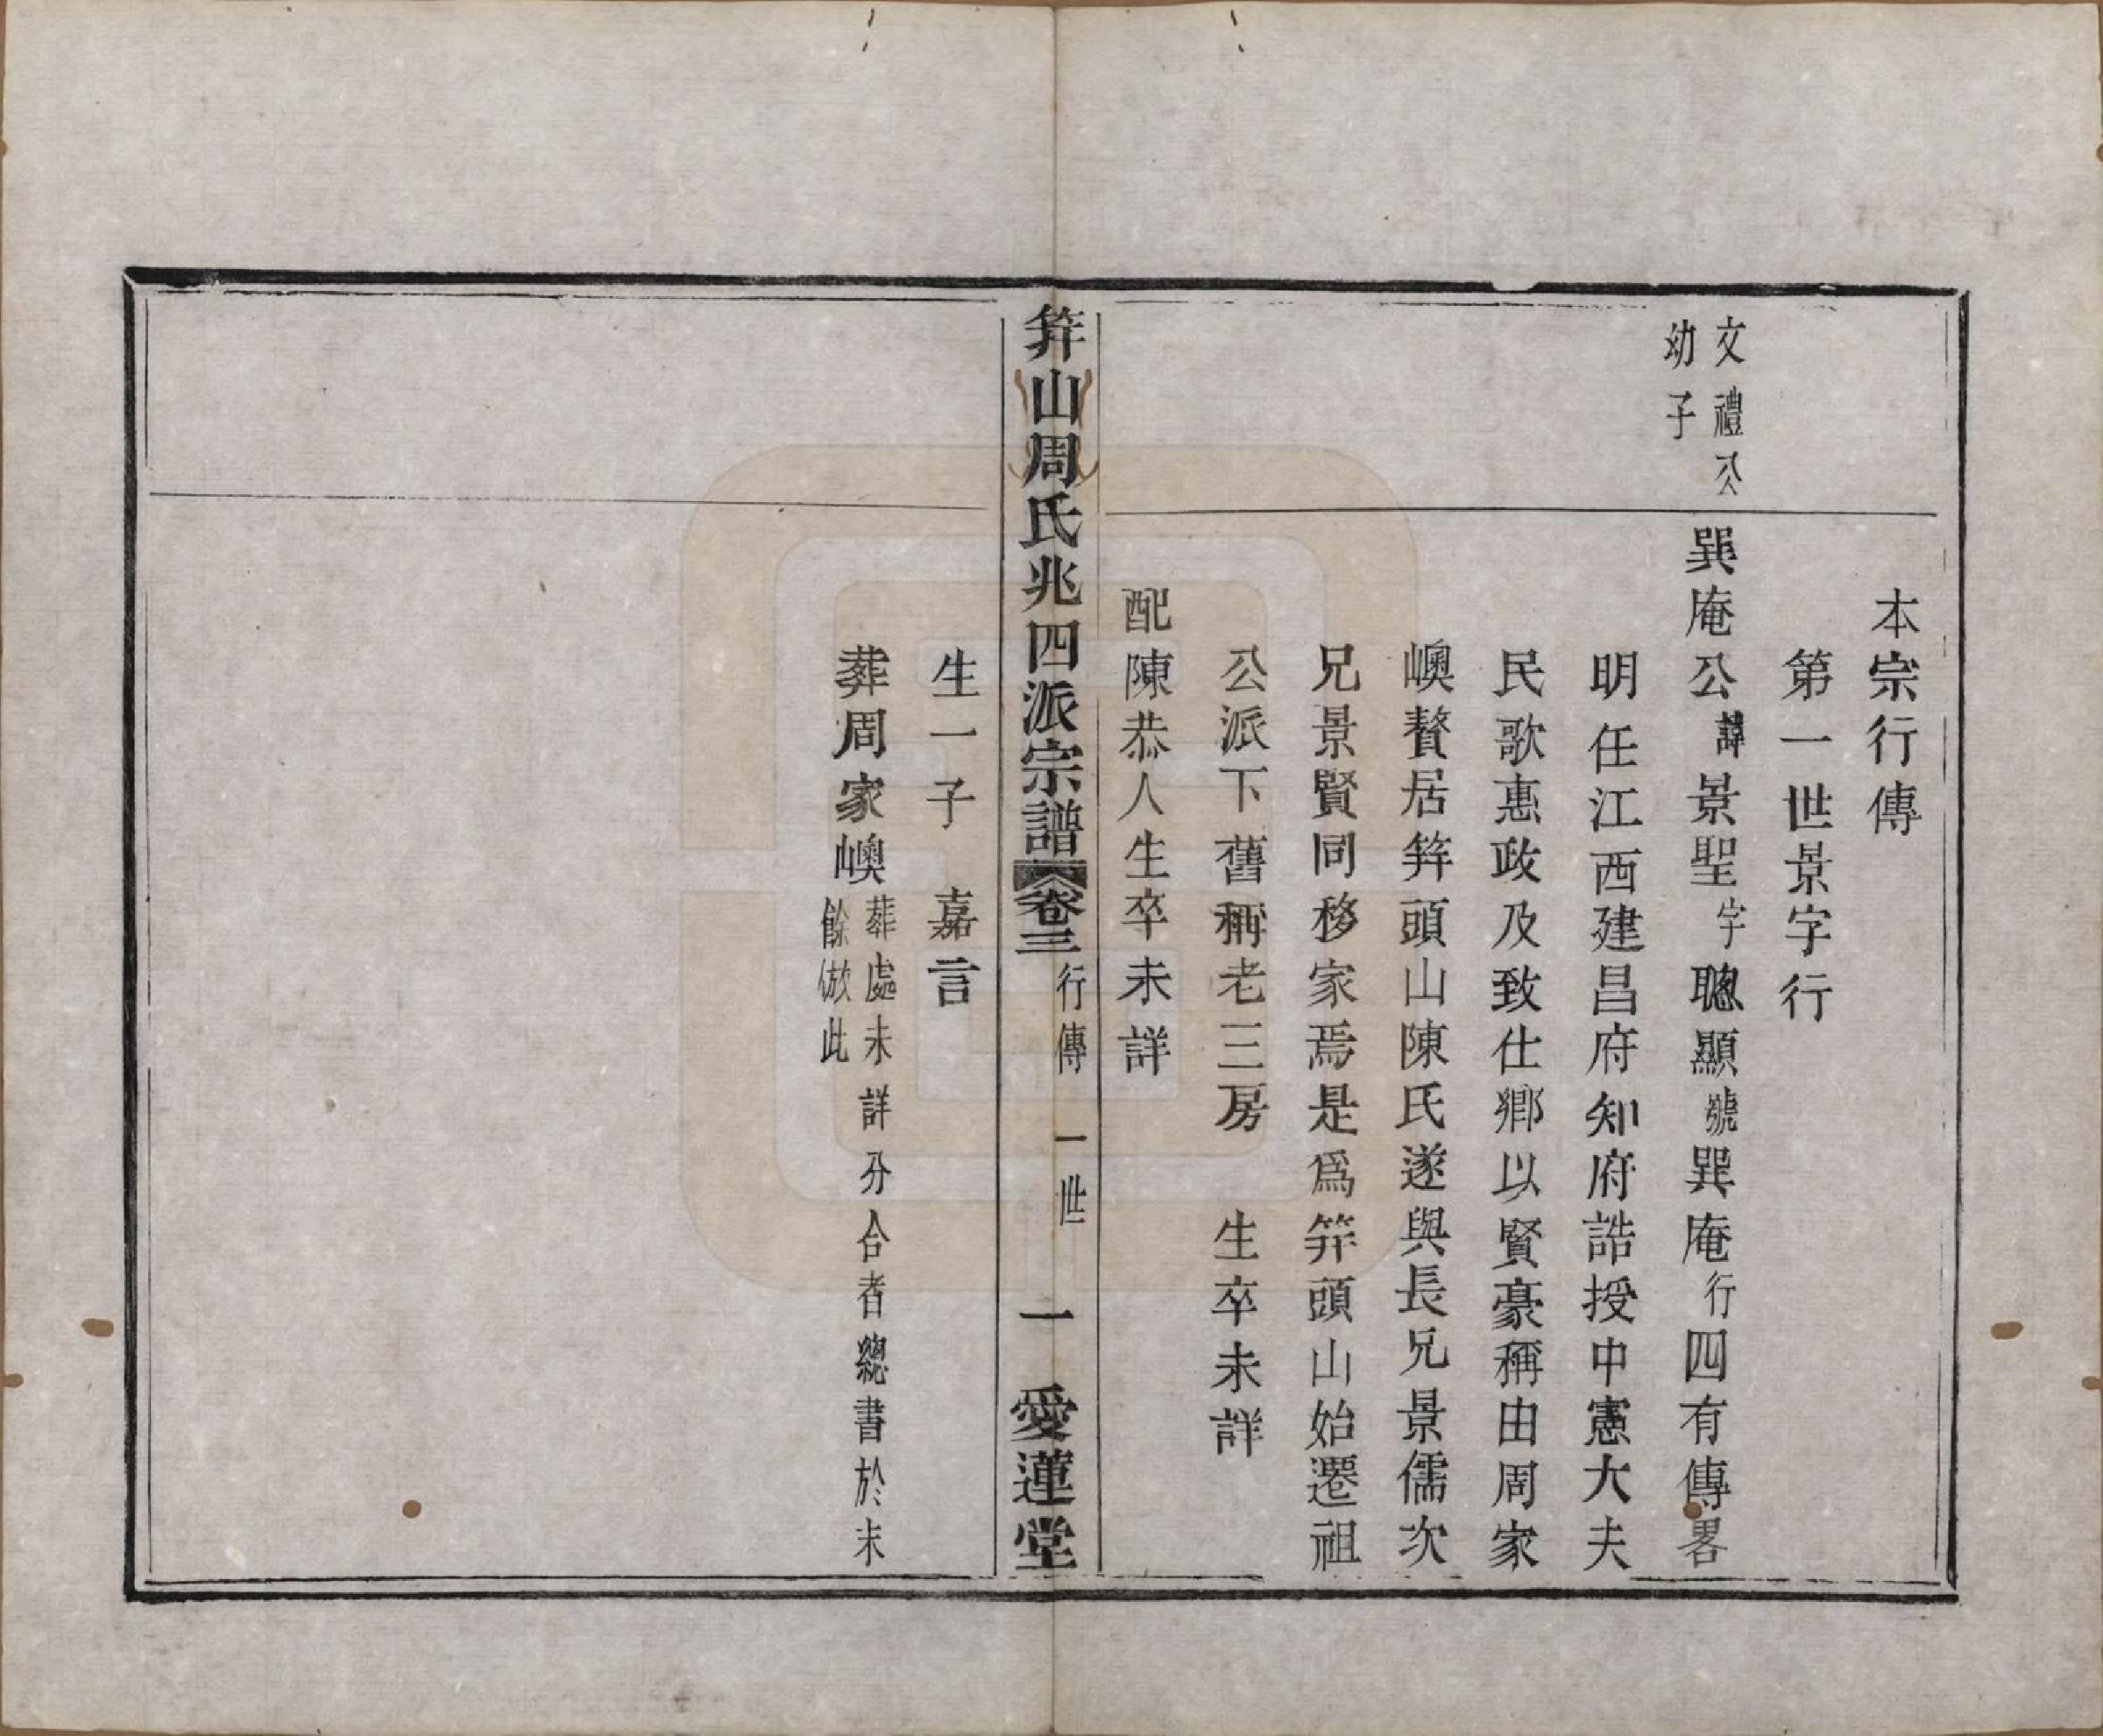 本宗行傳
第一世景字行
文禮公
幼子
巽庵公諱景聖字聰顯號巽庵行四有傳畧
明任江西建昌府知府誥授中憲大夫
民歌惠政及致仕鄉以賢豪稱由周家
嶴贅居筓頭山陳氏遂與長兄景儒次
兄景賢同移家焉是爲筓頭山始遷祖
公派下舊稱老三房 生卒未詳
配陳恭人生卒未詳
筓山周氏兆四派宗譜 卷三 行傳 一世 一 愛蓮堂
生一子 嘉言
葬周家嶴葬處未詳分合者總書於末
餘倣此